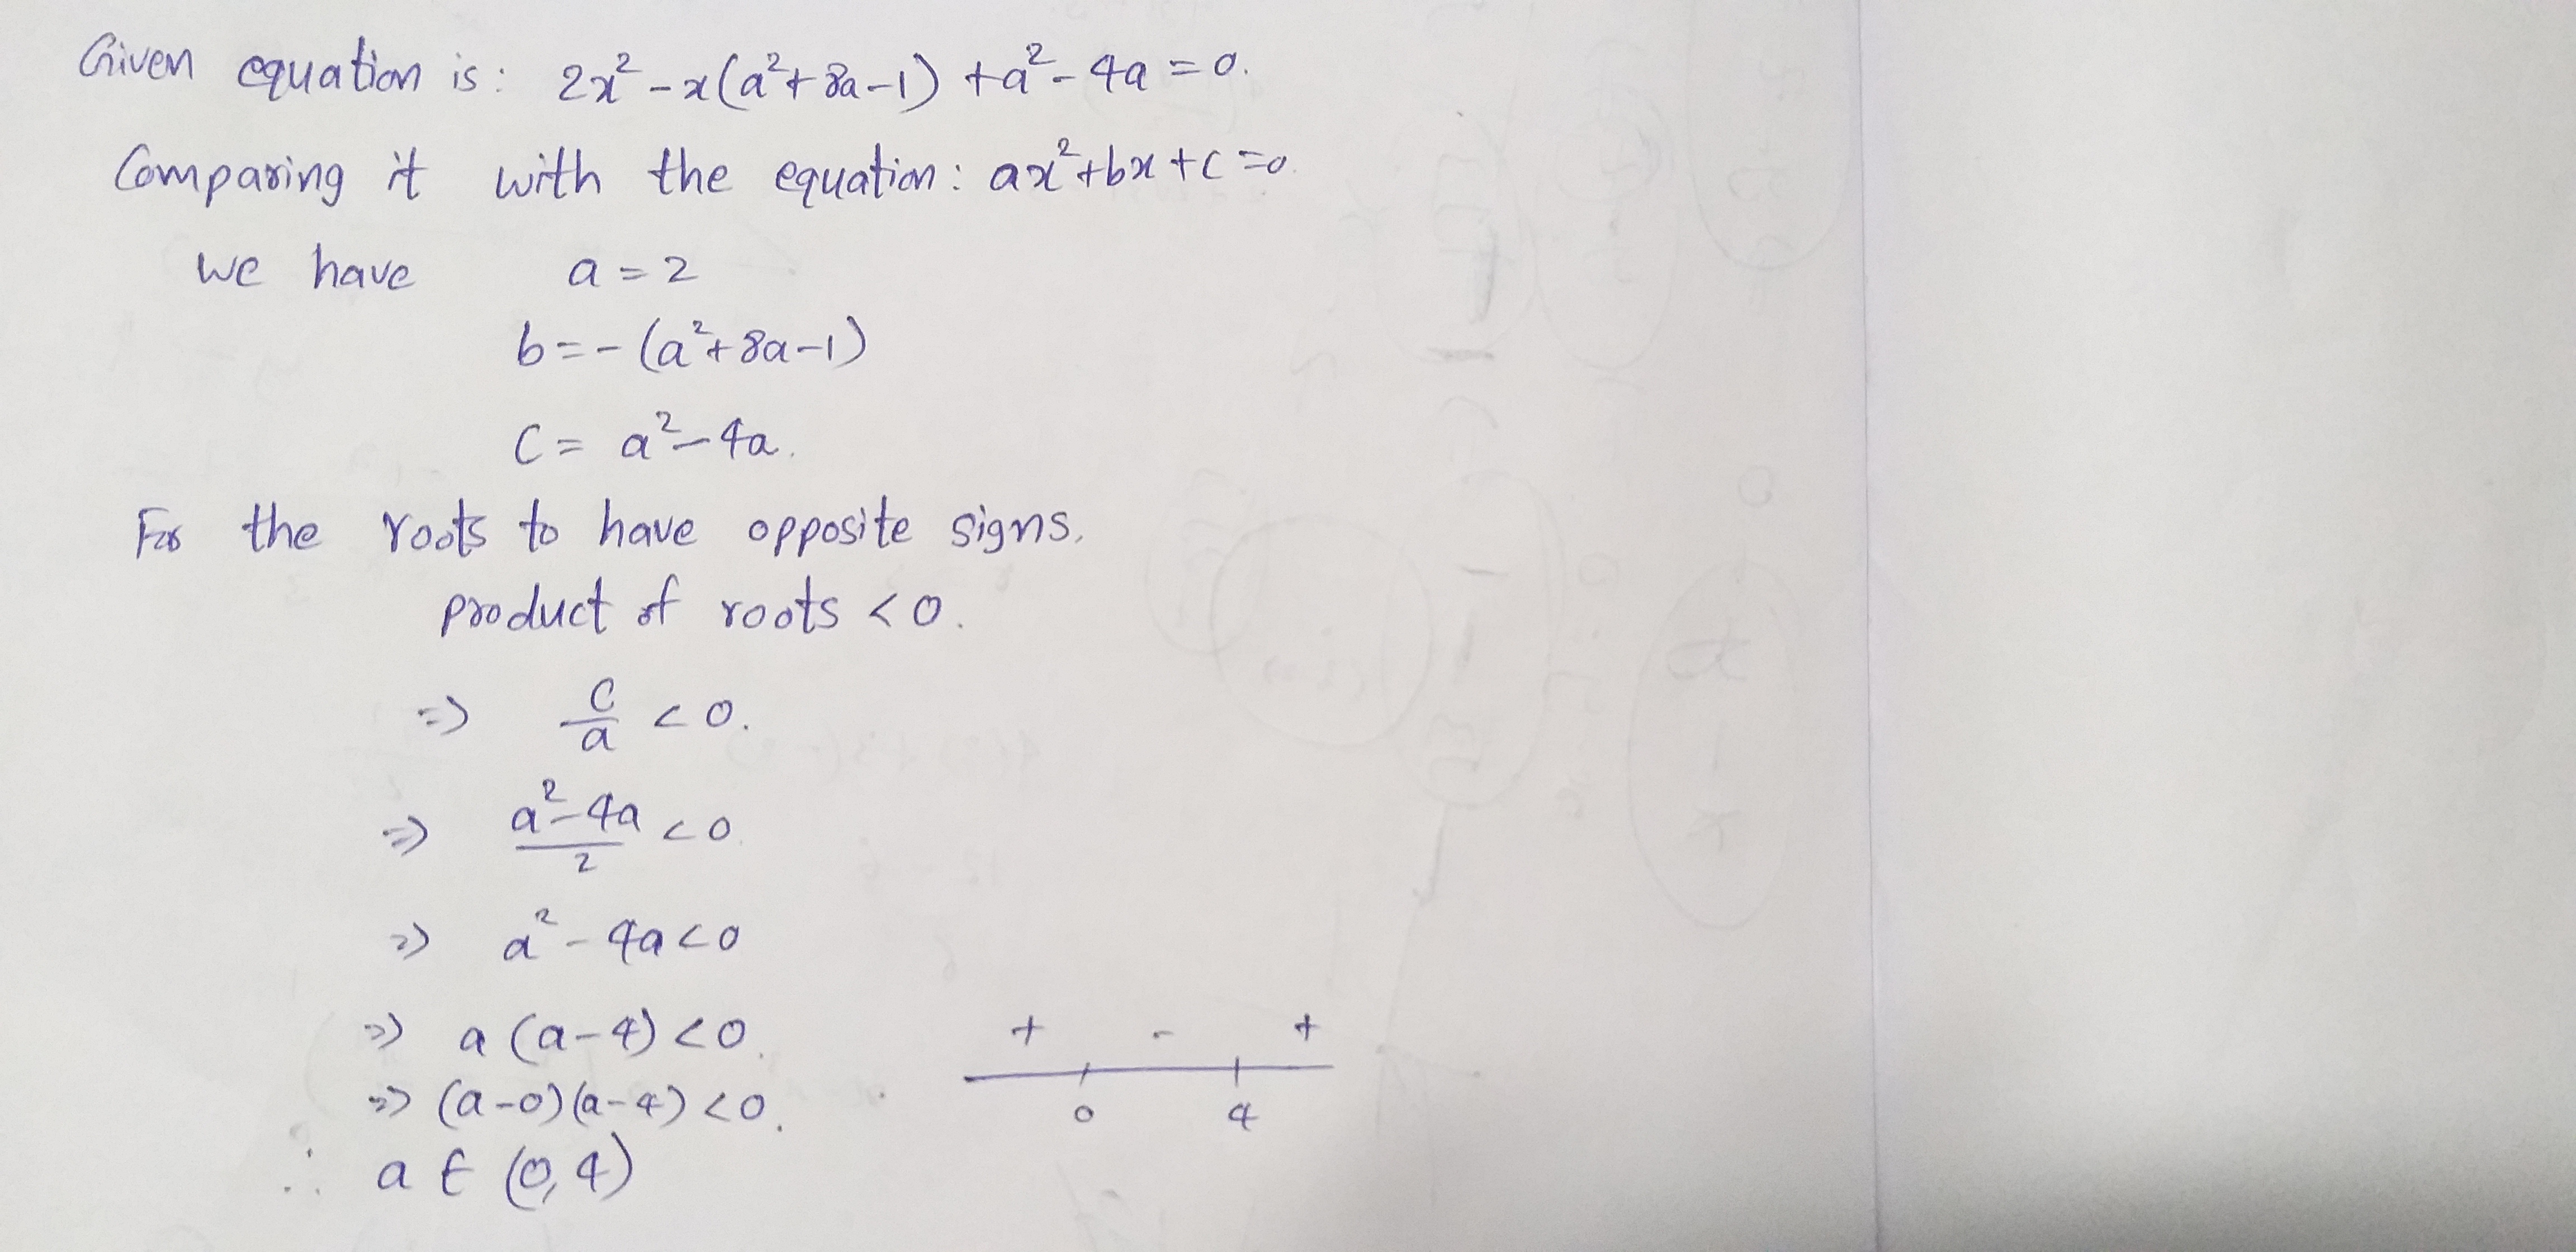 Given equation is: 2x² - x(a² + 8a - 1) + a² - 4a = 0.
Comparing it with the equation: ax² + bx + c = 0.
we have a = 2
b = - (a² + 8a - 1)
C = a² - 4a.
For the roots to have opposite signs.
product of roots < 0.
=> C/a < 0.
=> (a² - 4a)/2 < 0.
=> a² - 4a < 0
=> a (a - 4) < 0.
+ - +
=> (a - 0) (a - 4) < 0.
0 4
∴ a ∈ (0, 4)